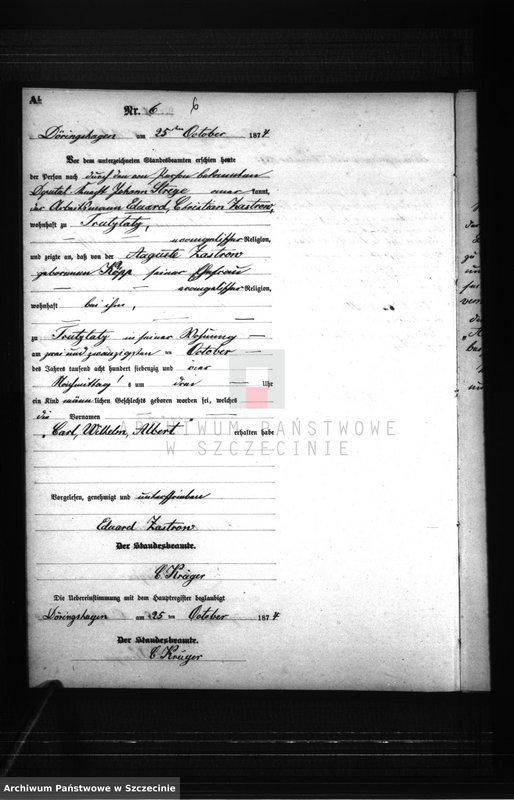 A1
Nr. 6 6
Döringshagen am 25ten October 1874
Vor dem unterzeichneten Standesbeamten erschien heute
der Person nach durch den von Person bekannten
Deputat-Knecht Johann Strege anerkannt,
der Arbeitsmann Eduard, Christian Zastrow,
wohnhaft zu Trutzlatz,
evangelischer Religion,
und zeigte an, daß von der Auguste Zastrow
geborenen Köpp seiner Ehefrau
evangelischer Religion,
wohnhaft bei ihm,
zu Trutzlatz in seiner Wohnung
am zwei und zwanzigsten ten October
des Jahres tausend acht hundert siebenzig und vier
Nachmittags um drei Uhr
ein Kind männlichen Geschlechts geboren worden sei, welches
die Vornamen
"Carl, Wilhelm, Albert" erhalten habe
Vorgelesen, genehmigt und unterschrieben
Eduard Zastrow
Der Standesbeamte.
C Krüger
Die Uebereinstimmung mit dem Hauptregister beglaubigt
Döringshagen am 25 ten October 1874
Der Standesbeamte.
C Krüger
ARCHIWUM PAŃSTWOWE
W SZCZECINIE
Archiwum Państwowe w Szczecinie